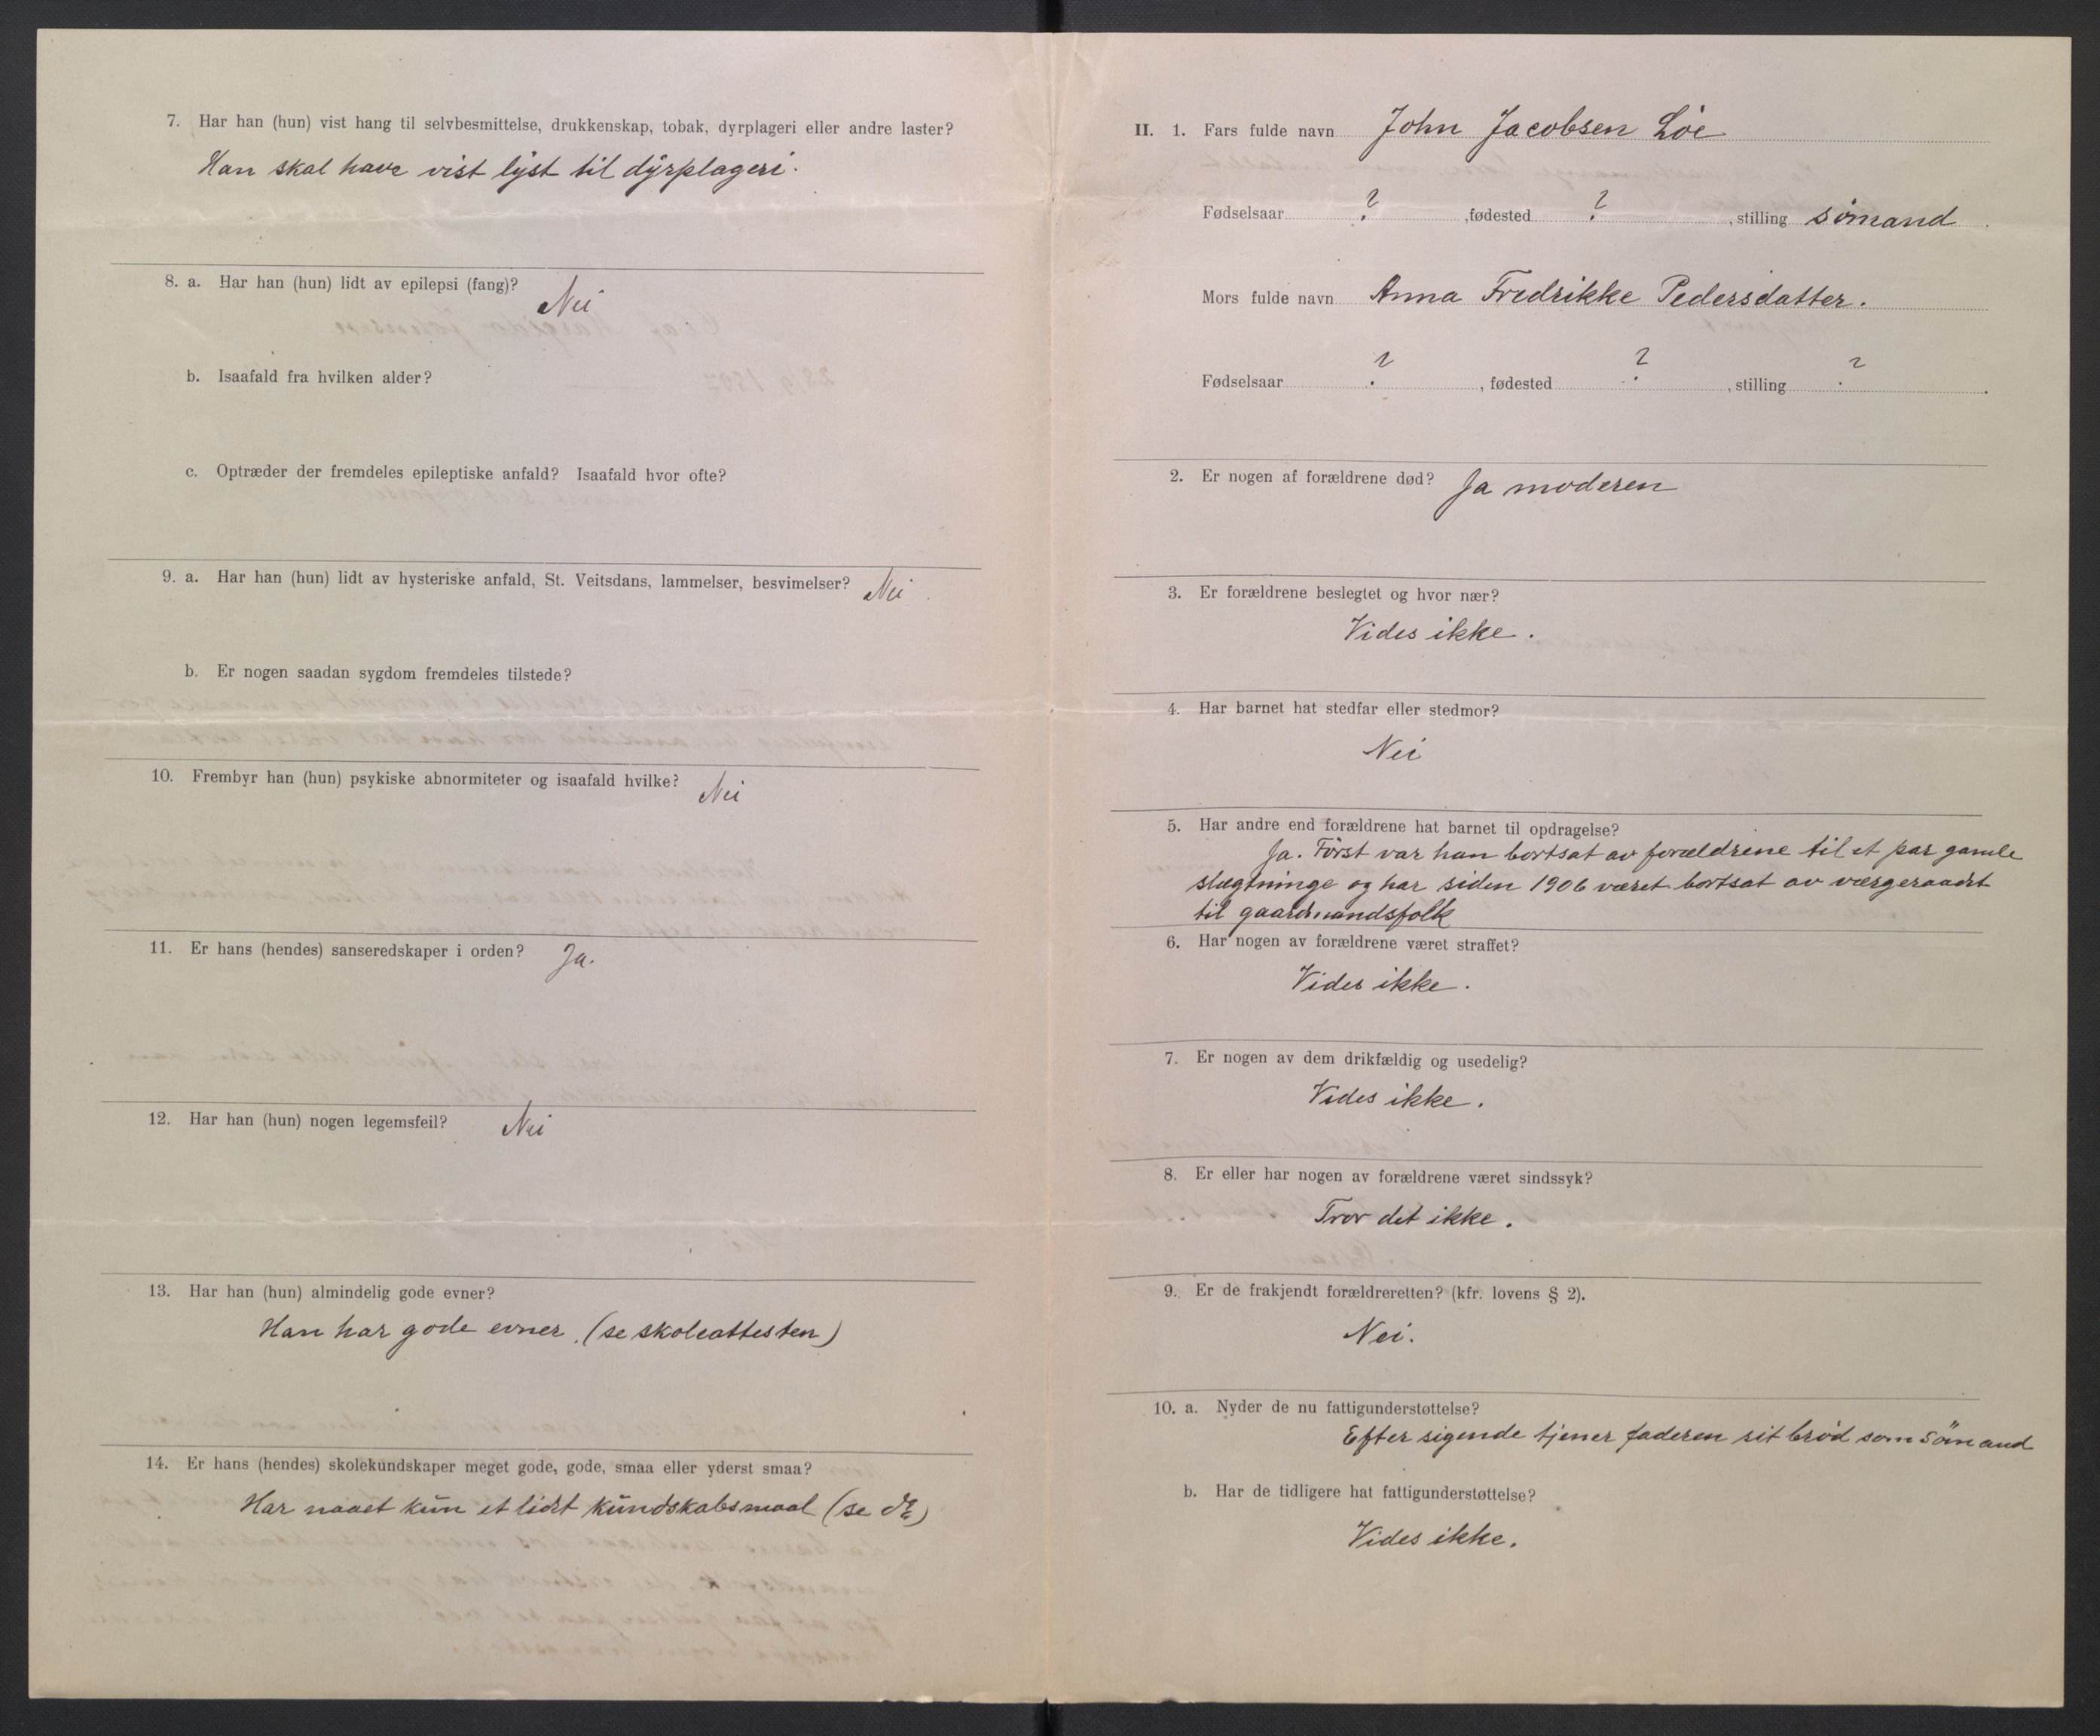 7. Har han (hun) vist hang til selvbesmittelse, drukkenskap, tobak, dyrplageri eller andre laster?
Han skal have vist lyst til dyrplageri.
8. a. Har han (hun) lidt av epilepsi (fang)? Nei
b. Isaafald fra hvilken alder?
c. Optræder der fremdeles epileptiske anfald? Isaafald hvor ofte?
9. a. Har han (hun) lidt av hysteriske anfald, St. Veitsdans, lammelser, besvimelser? Nei.
b. Er nogen saadan sygdom fremdeles tilstede?
10. Frembyr han (hun) psykiske abnormiteter og isaafald hvilke? Nei
11. Er hans (hendes) sanseredskaper i orden? Ja.
12. Har han (hun) nogen legemsfeil? Nei
13. Har han (hun) almindelig gode evner?
Han har gode evner. (se skoleattesten)
14. Er hans (hendes) skolekundskaper meget gode, gode, smaa eller yderst smaa?
Har naaet kun et lidet kundskabsmaal (se do)
II. 1. Fars fulde navn John Jacobsen Löe
Fødselsaar ? , fødested ? , stilling sömand.
Mors fulde navn Anna Fredrikke Pedersdatter.
Fødselsaar ? , fødested ? , stilling ? .
2. Er nogen af forældrene død? Ja moderen
3. Er forældrene beslegtet og hvor nær?
Vides ikke.
4. Har barnet hat stedfar eller stedmor?
Nei
5. Har andre end forældrene hat barnet til opdragelse?
Ja. Först var han bortsat av forældrene til et par gamle
slægtninge og har siden 1906 været bortsat av værgeraadet
til gaardmandsfolk
6. Har nogen av forældrene været straffet?
Vides ikke.
7. Er nogen av dem drikfældig og usedelig?
Vides ikke.
8. Er eller har nogen av forældrene været sindssyk?
Tror det ikke.
9. Er de frakjendt forældreretten? (kfr. lovens § 2).
Nei.
10. a. Nyder de nu fattigunderstøttelse?
Efter sigende tjener faderen sit bröd som sömand
b. Har de tidligere hat fattigunderstøttelse?
Vides ikke.